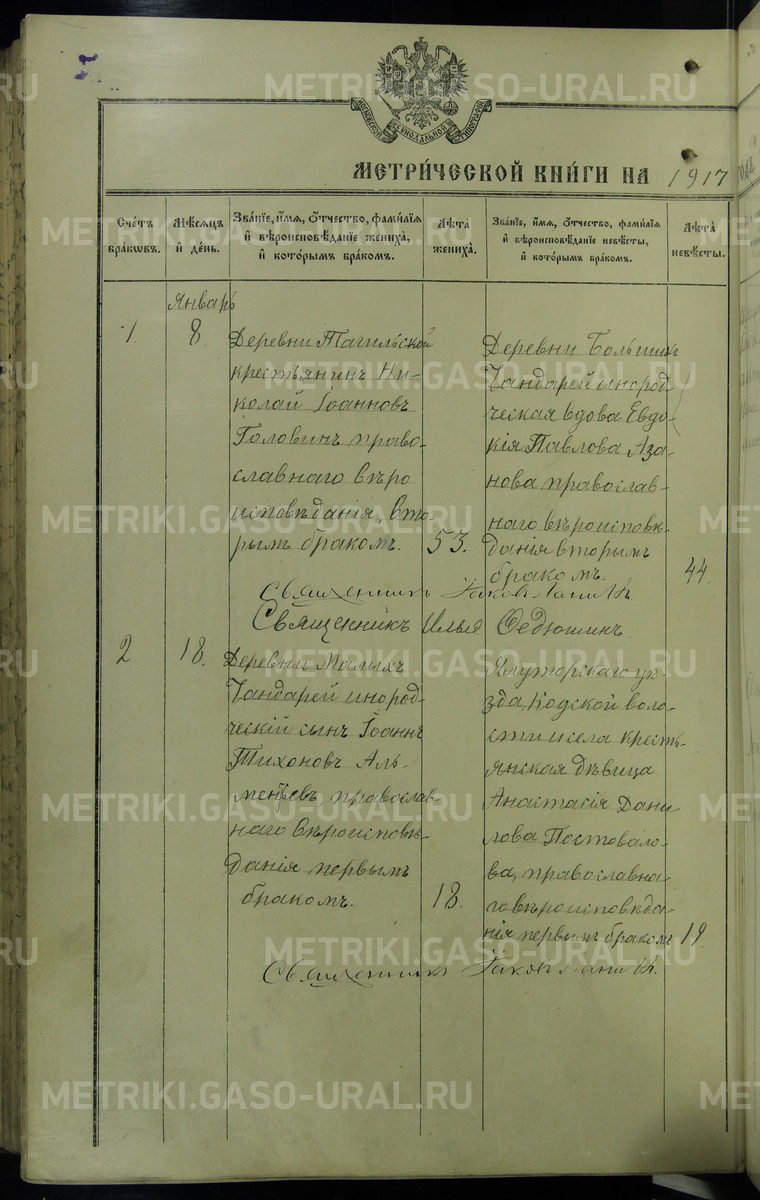 МЕТРИ́ЧЕСКОЙ КНИ́ГИ НА 1917
Сче́тъ бра́кωвъ.
Мѣ́сяцъ и҆ де́нь.
Зва́нїе, и҆́мя, ѻ҆́тчество, фами́лїя и҆ вѣроисповѣ́данїе жениха̀, и҆ кото́рымъ бра́комъ.
Лѣ́та жениха̀.
Зва́нїе, и҆́мя, ѻ҆́тчество, фами́лїя и҆ вѣроисповѣ́данїе невѣ́сты, и҆ кото́рымъ бра́комъ.
Лѣ́та невѣ́сты.
Январь
1
8.
Деревни Тагильской
крестьянинъ Ни-
колай Іоанновъ
Головинъ право-
славнаго вѣро
исповѣданія, вто-
рымъ бракомъ.
53.
Деревни Большихъ
Чандарей инород-
ческая вдова Евдо-
кія Павлова Аза-
нова православ-
наго вѣроисповѣ-
данія вторымъ
бракомъ.
44.
Священникъ Іаковъ
Священникъ Илья Федюшинъ.
2
18.
Деревни Малыхъ
Чандарей инород-
ческій сынъ Іоаннъ
Тихоновъ Аль-
менѣевъ, православ-
наго вѣроисповѣ-
данія первымъ
бракомъ.
18.
Ялуторскаго уѣ-
зда, Кодской воло-
сти и села кресть-
янская дѣвица
Анастасія Дани-
лова Постовало-
ва, православна-
го вѣроисповѣда-
нія первымъ бракомъ
19
Священникъ Іаковъ
METRIKI.GASO-URAL.RU